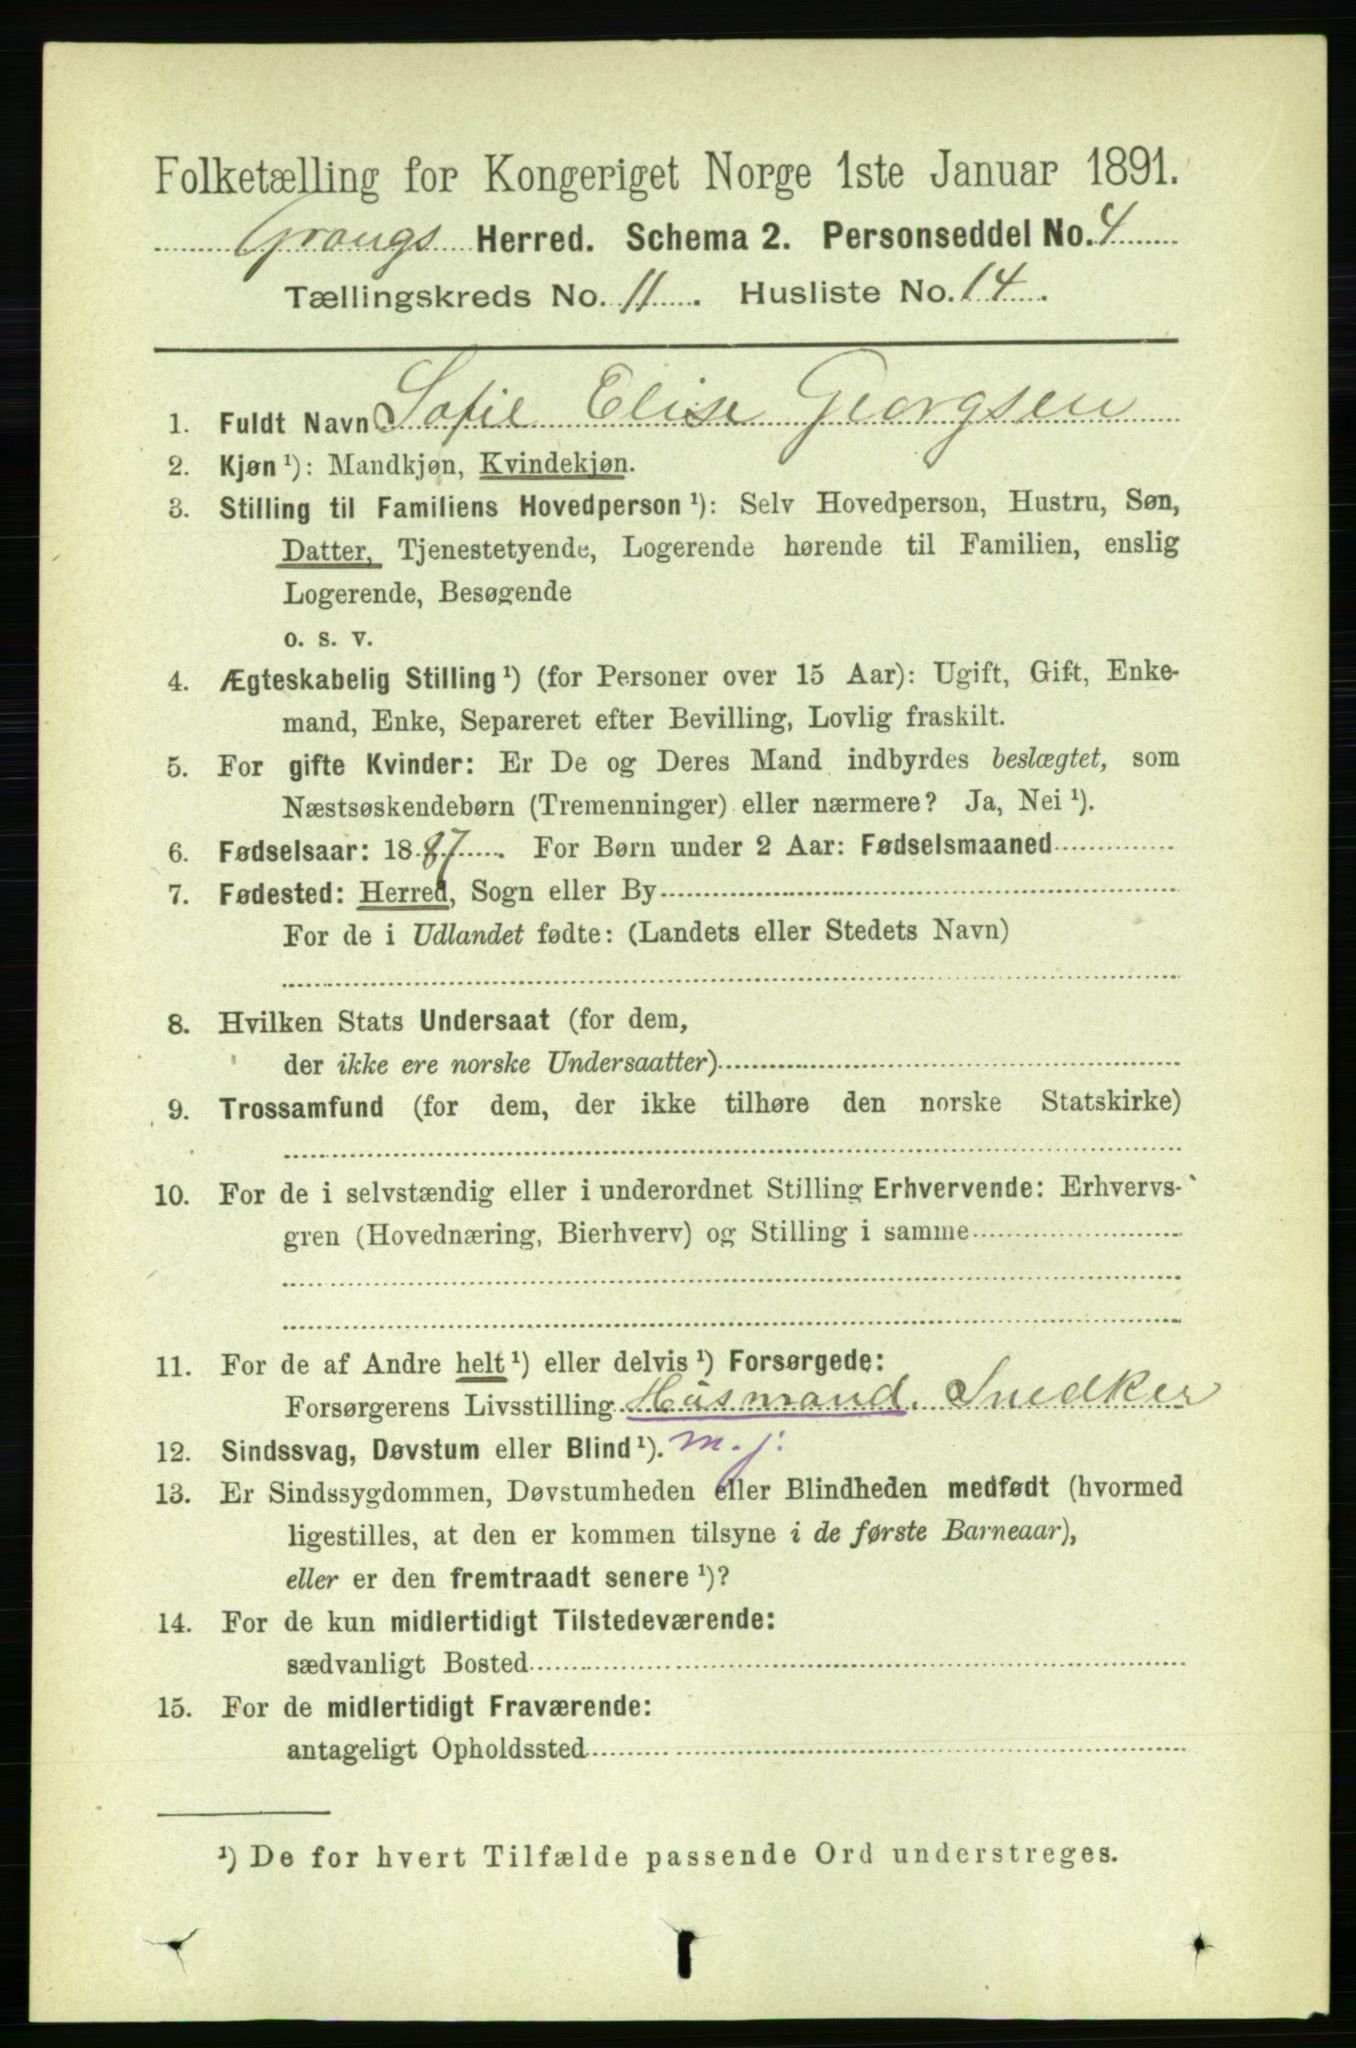 Folketælling for Kongeriget Norge 1ste Januar 1891.
Grongs Herred. Schema 2. Personseddel No. 4
Tællingskreds No. 11. Husliste No. 14.
1. Fuldt Navn Sofie Elise Georgsen
2. Kjøn ¹): Mandkjøn, Kvindekjøn.
3. Stilling til Familiens Hovedperson ¹): Selv Hovedperson, Hustru, Søn,
Datter, Tjenestetyende, Logerende hørende til Familien, enslig
Logerende, Besøgende
o. s. v.
4. Ægteskabelig Stilling ¹) (for Personer over 15 Aar): Ugift, Gift, Enke-
mand, Enke, Separeret efter Bevilling, Lovlig fraskilt.
5. For gifte Kvinder: Er De og Deres Mand indbyrdes beslægtet, som
Næstsøskendebørn (Tremenninger) eller nærmere? Ja, Nei ¹).
6. Fødselsaar: 1887. For Børn under 2 Aar: Fødselsmaaned
7. Fødested: Herred, Sogn eller By
For de i Udlandet fødte: (Landets eller Stedets Navn)
8. Hvilken Stats Undersaat (for dem,
der ikke ere norske Undersaatter)
9. Trossamfund (for dem, der ikke tilhøre den norske Statskirke)
10. For de i selvstændig eller i underordnet Stilling Erhvervende: Erhvervs-
gren (Hovednæring, Bierhverv) og Stilling i samme
11. For de af Andre helt ¹) eller delvis ¹) Forsørgede:
Forsørgerens Livsstilling Husmand. Snedker
12. Sindssvag, Døvstum eller Blind ¹). m. j.
13. Er Sindssygdommen, Døvstumheden eller Blindheden medfødt (hvormed
ligestilles, at den er kommen tilsyne i de første Barneaar),
eller er den fremtraadt senere ¹)?
14. For de kun midlertidigt Tilstedeværende:
sædvanligt Bosted
15. For de midlertidigt Fraværende:
antageligt Opholdssted
¹) De for hvert Tilfælde passende Ord understreges.